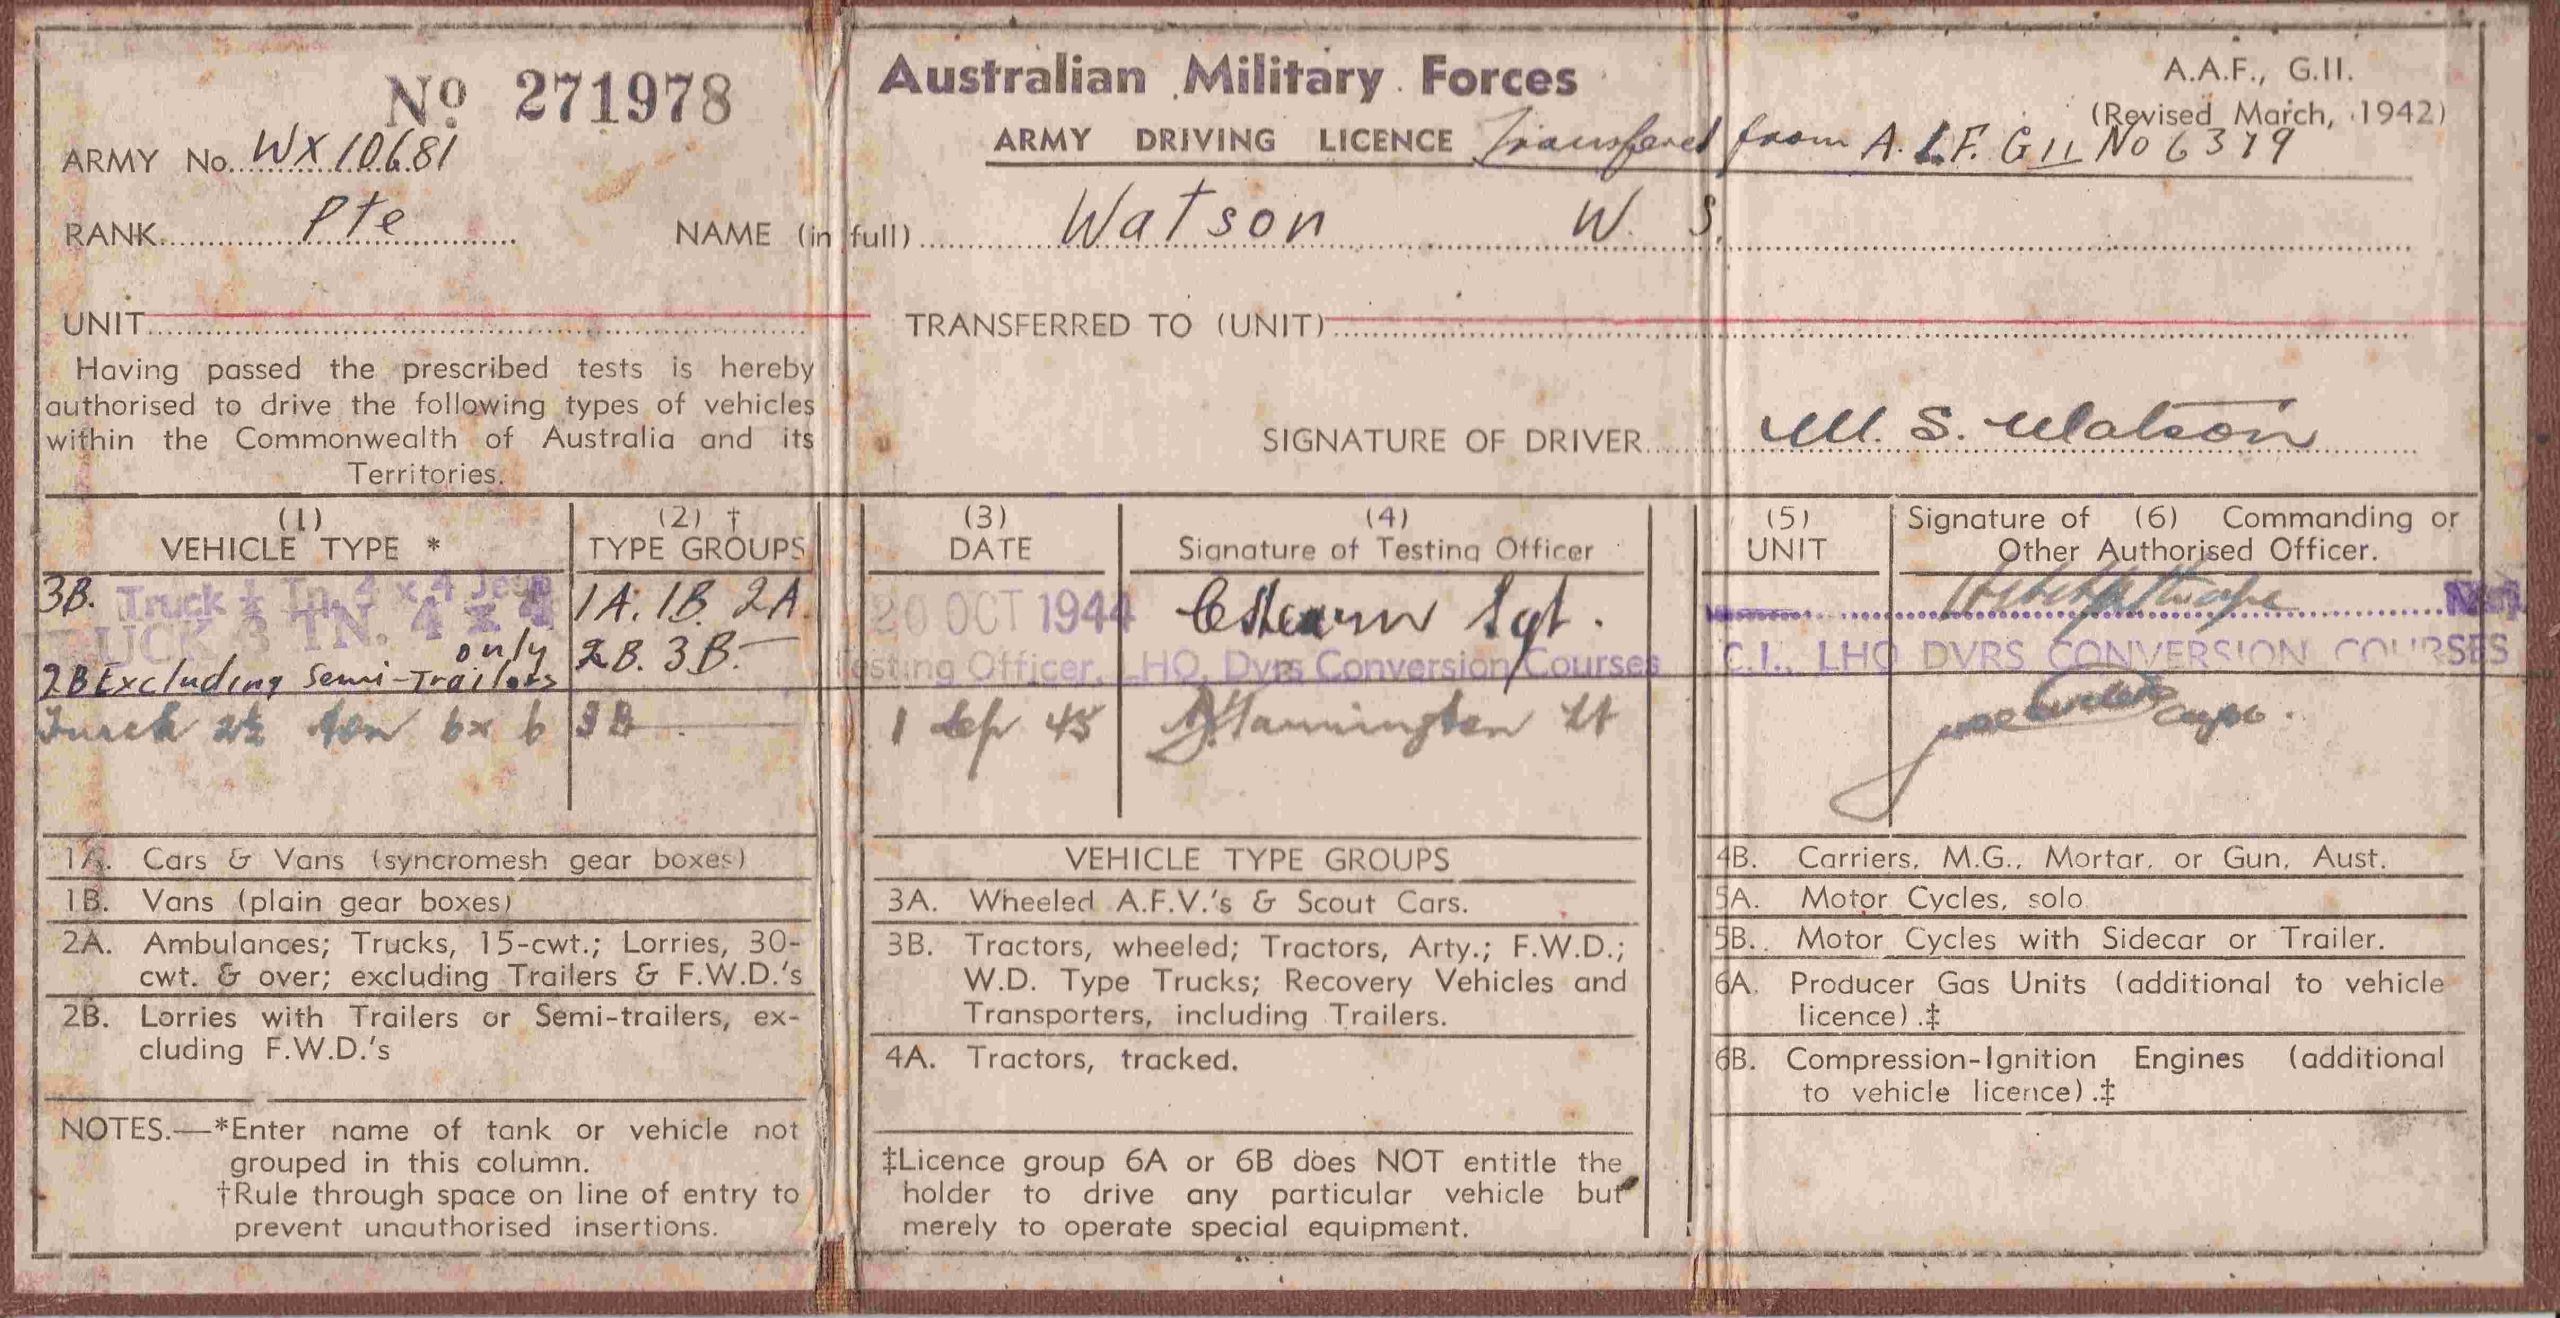 No 271978
Australian Military Forces
A.A.F., G.II.
(Revised March, 1942)
ARMY No. WX 10681
ARMY DRIVING LICENCE Transfered from A.I.F. G II No 6379
RANK Pte NAME (in full) Watson W. S.
UNIT
TRANSFERRED TO (UNIT)
Having passed the prescribed tests is hereby
authorised to drive the following types of vehicles
within the Commonwealth of Australia and its
Territories.
SIGNATURE OF DRIVER W. S. Watson
(1)
VEHICLE TYPE *
(2) †
TYPE GROUPS
(3)
DATE
(4)
Signature of Testing Officer
(5)
UNIT
Signature of (6) Commanding or
Other Authorised Officer.
3B. Truck Tn. 4 x 4 Jeep
TRUCK 3 TN. 4 x 4
only
2B Excluding Semi-Trailers
1A. 1B. 2A.
2B. 3B.
20 OCT 1944
Sgt.
Testing Officer, LHQ, Dvrs Conversion Courses
C.I., LHQ DVRS CONVERSION COURSES
Truck 2½ ton 6x6 3B
1 Sep 45
Lt
Capt.
1A. Cars & Vans (syncromesh gear boxes)
1B. Vans (plain gear boxes)
2A. Ambulances; Trucks, 15-cwt.; Lorries, 30-
cwt. & over; excluding Trailers & F.W.D.'s
2B. Lorries with Trailers or Semi-trailers, ex-
cluding F.W.D.'s
NOTES.—*Enter name of tank or vehicle not
grouped in this column.
†Rule through space on line of entry to
prevent unauthorised insertions.
VEHICLE TYPE GROUPS
3A. Wheeled A.F.V.'s & Scout Cars.
3B. Tractors, wheeled; Tractors, Arty.; F.W.D.;
W.D. Type Trucks; Recovery Vehicles and
Transporters, including Trailers.
4A. Tractors, tracked.
‡Licence group 6A or 6B does NOT entitle the
holder to drive any particular vehicle but
merely to operate special equipment.
4B. Carriers, M.G., Mortar, or Gun, Aust.
5A. Motor Cycles, solo
5B. Motor Cycles with Sidecar or Trailer.
6A. Producer Gas Units (additional to vehicle
licence).‡
6B. Compression-Ignition Engines (additional
to vehicle licence).‡